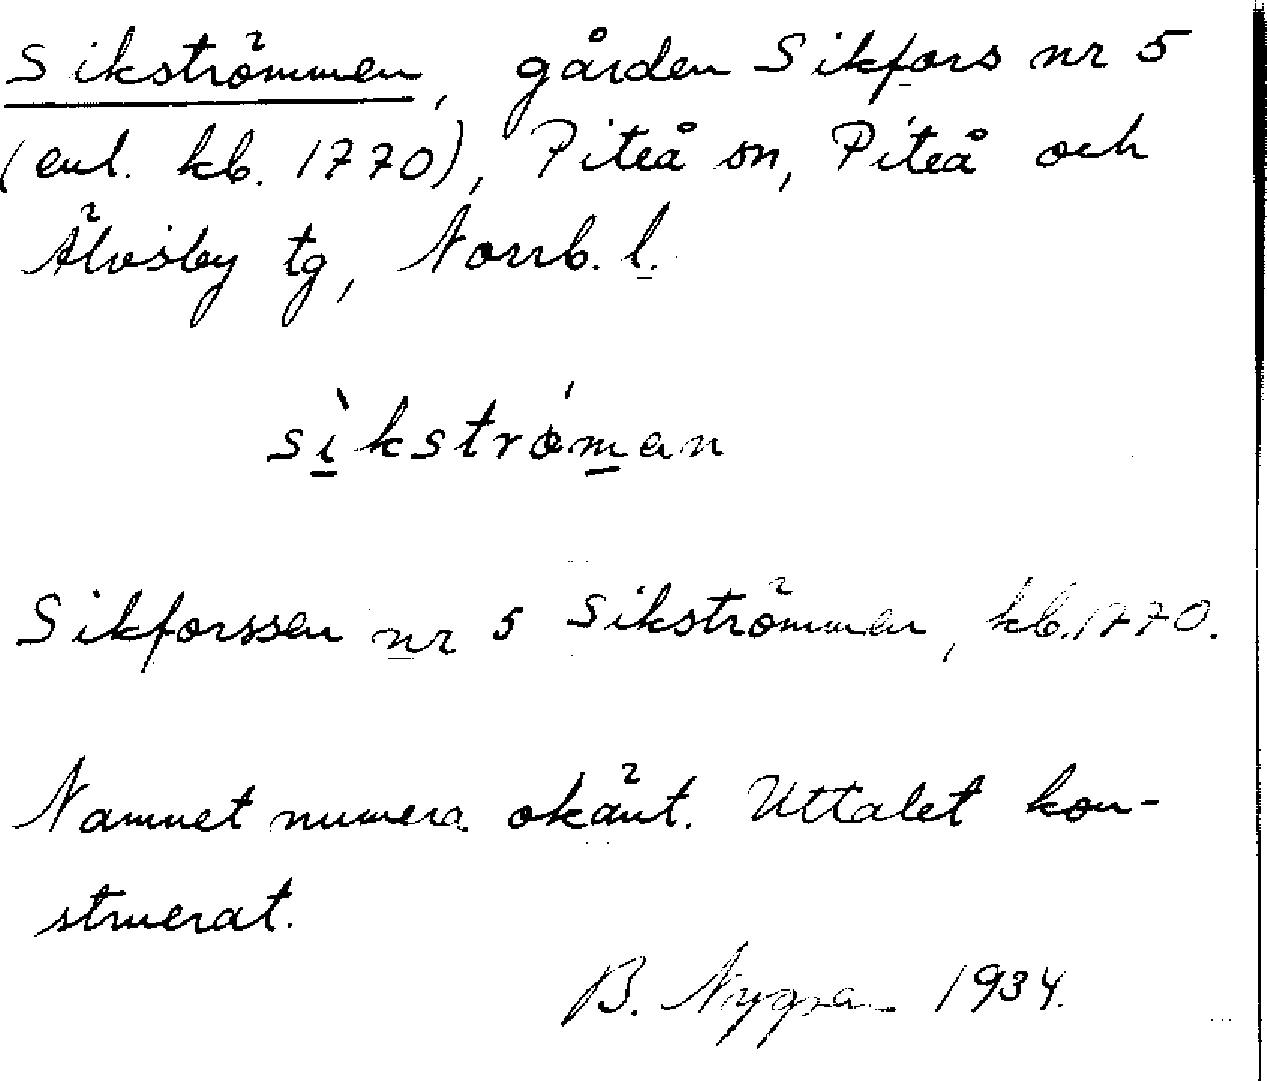 Sikströmmen, gården Sikfors nr 5
(enl. kb. 1770), Piteå sn, Piteå och
Älvsby tg, Norrb. l.
sìkstrǿman
Sikforssen nr 5 Sikströmmen, kb. 1770.
Namnet numera okänt. Uttalet kon-
struerat.
B. Nygren 1934.